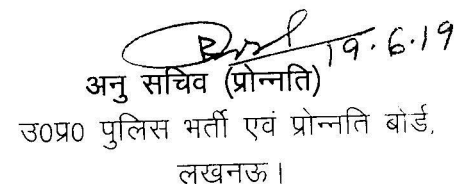 19.6.19
अनु सचिव (प्रोन्नति)
उ0प्र0 पुलिस भर्ती एवं प्रोन्नति बोर्ड,
लखनऊ।